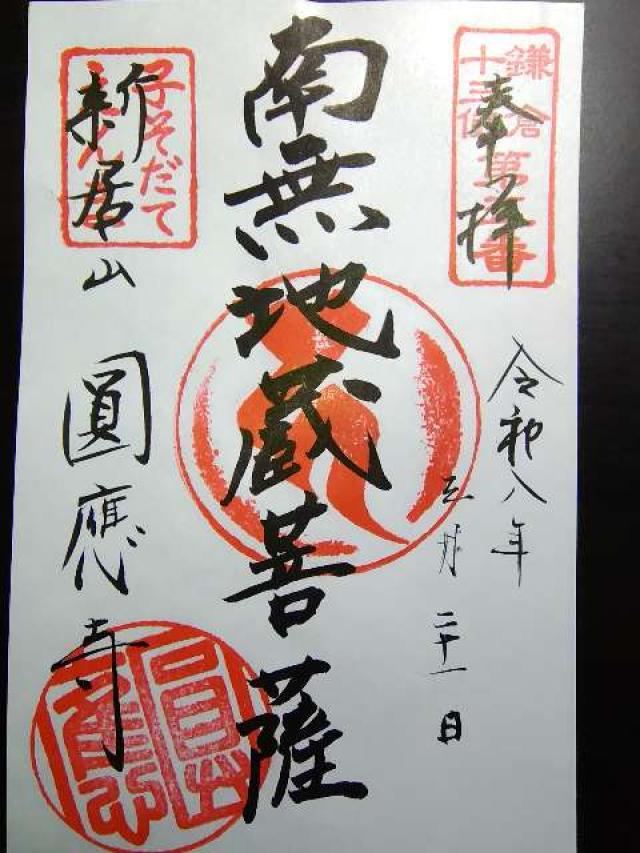 鎌倉
十三佛
第五番
奉拝
令和八年
三月二十一日
南無地蔵菩薩
子そだて
えんま
新居山
圓應寺